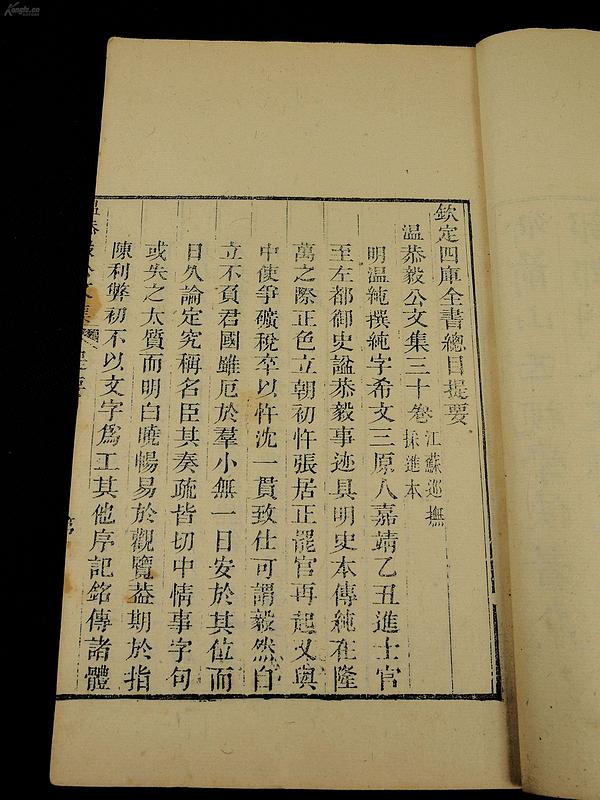 欽定四庫全書總目提要
温恭毅公文集三十卷江蘇巡撫
採進本
明温純撰純字希文三原人嘉靖乙丑進士官
至左都御史諡恭毅事迹具明史本傳純在隆
萬之際正色立朝初忤張居正罷官再起又與
中使爭礦稅卒以忤沈一貫致仕可謂毅然自
立不負君國雖厄於羣小無一日安於其位而
日久論定究稱名臣其奏疏皆切中情事字句
或失之太質而明白曉暢易於觀覽葢期於指
陳利弊初不以文字爲工其他序記銘傳諸體
温恭毅公文集
提要
Kongfz.cn